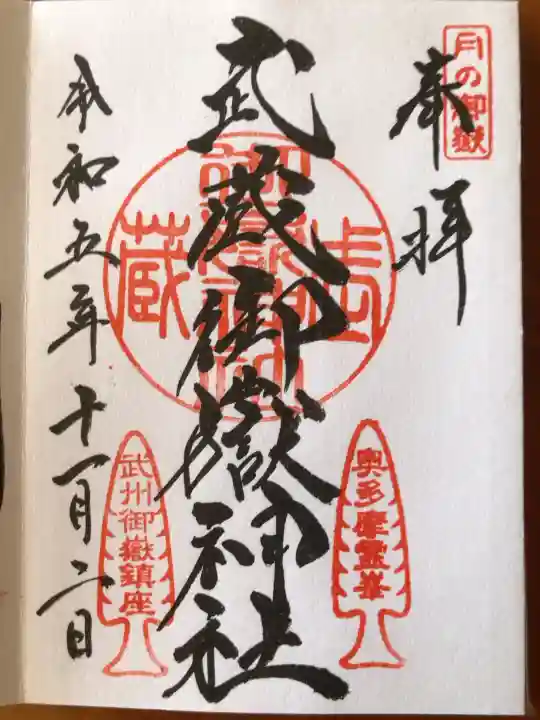 月の御嶽
奉拝
奥多摩霊峯
武蔵御嶽神社
武蔵
御嶽神社
武州御嶽鎮座
令和五年十一月二日